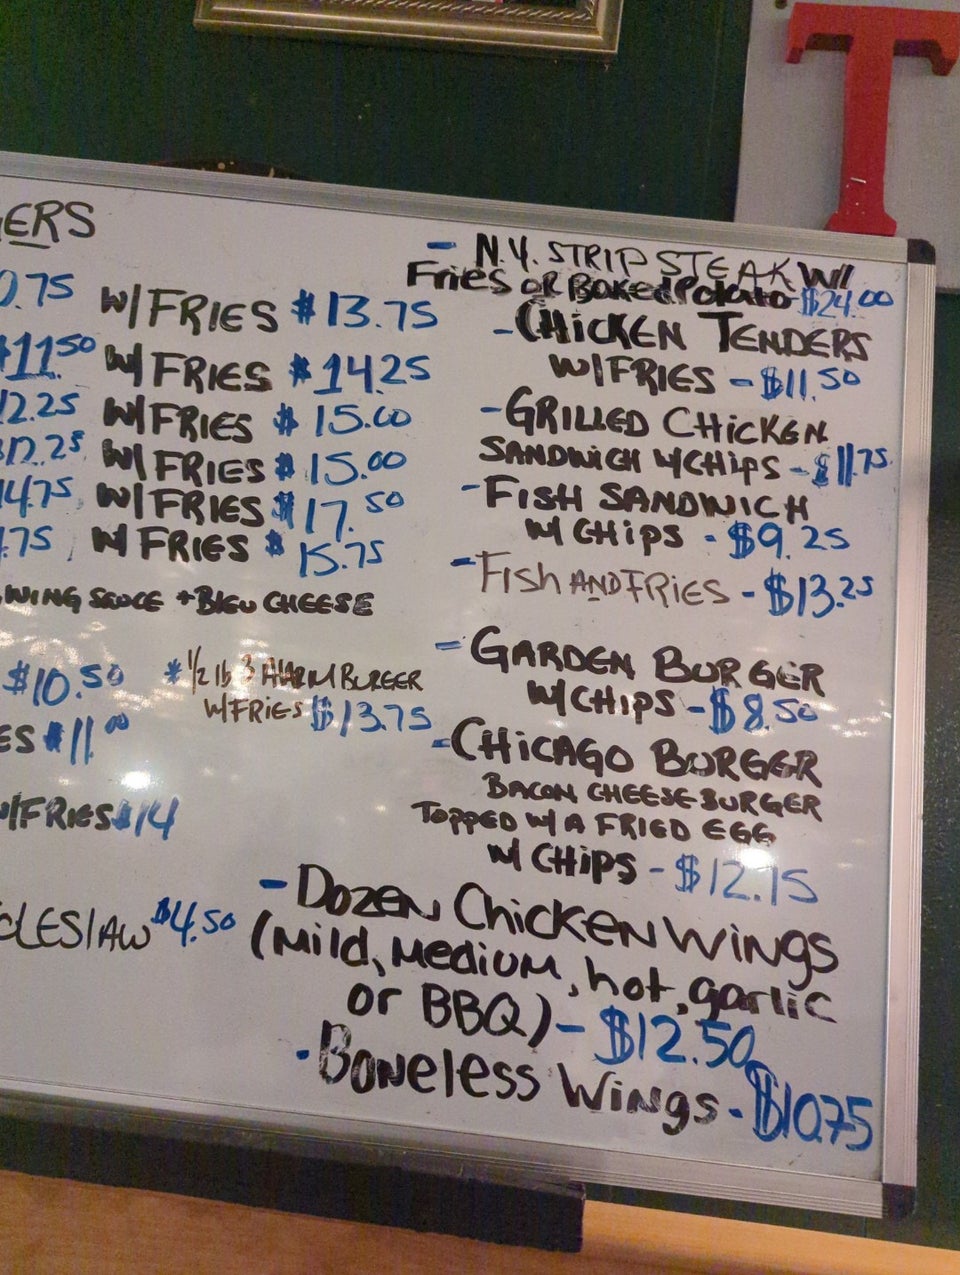 ERS
0.75 W/FRIES $13.75
$11.50 W/FRIES $14.25
12.25 W/FRIES $15.00
12.25 W/FRIES $15.00
14.75 W/FRIES $17.50
.75 W/FRIES $15.75
WING SAUCE + BLEU CHEESE
$10.50
ES $11.00
*1/2 lb 3 ALARM BURGER
W/FRIES $13.75
W/FRIES $14
COLESLAW $4.50
- N.Y. STRIP STEAK W/
Fries OR Baked Potato - $24.00
- CHiCKEN TENDERS
W/FRIES - $11.50
- GRILLED CHiCKEN
SANDWiCH W/CHiPS - $11.75
- FISH SANDWICH
W/CHiPS - $9.25
- Fish AND FRIES - $13.25
- GARDEN BURGER
W/CHiPS - $8.50
- CHiCAGO BURGER
BACON CHEESEBURGER
TOPPED W/ A FRIED EGG
W/ CHiPS - $12.75
- Dozen Chicken Wings
(Mild, Medium, hot, garlic
or BBQ) - $12.50
- Boneless Wings - $10.75
T